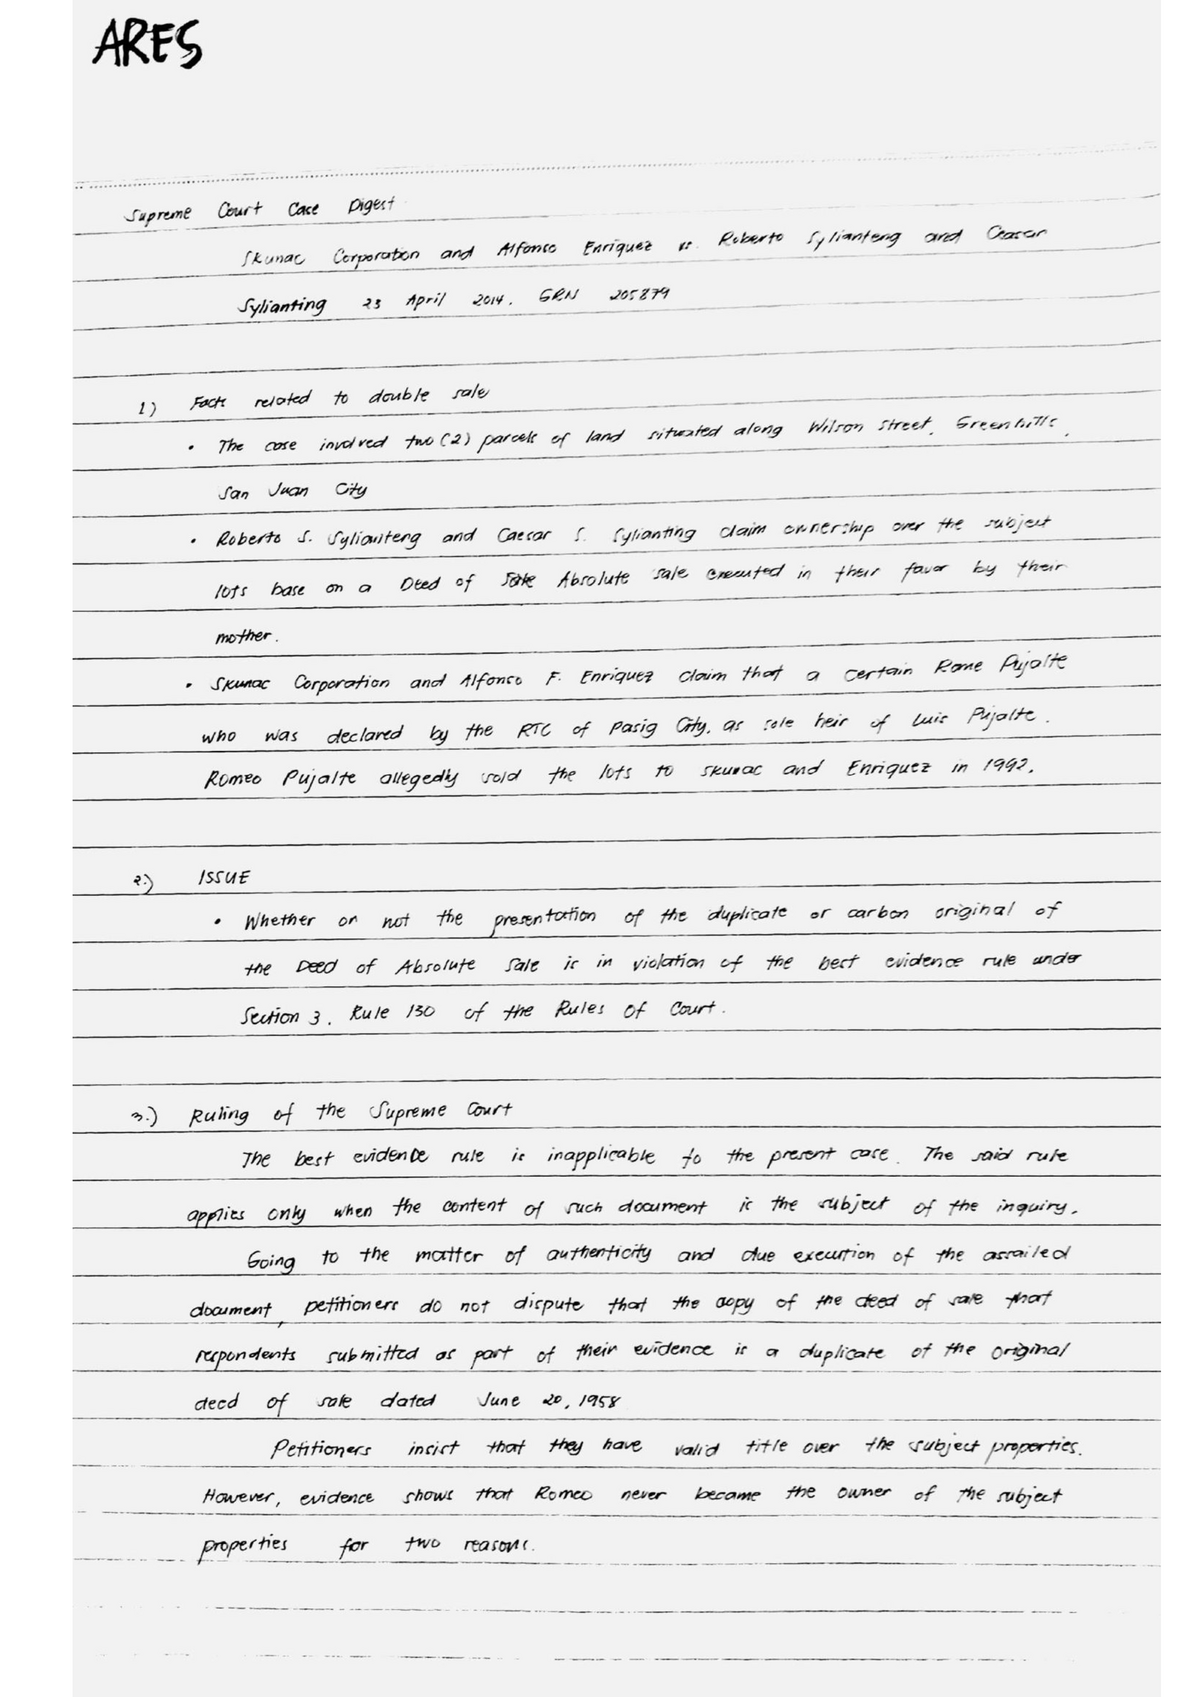 ARES
Supreme Court Case Digest
Skunac Corporation and Alfonso Enriquez vs. Roberto Sylianteng and Ceasar
Sylianting 23 April 2014. GRN 205879
1) Facts related to double sale
• The case involved two (2) parcels of land situated along Wilson Street, Greenhills,
San Juan City
• Roberto S. Sylianteng and Caesar S. Sylianting claim ownership over the subject
lots base on a Deed of Sale Absolute sale executed in their favor by their
mother.
• Skunac Corporation and Alfonso F. Enriquez claim that a certain Rome Pujalte
who was declared by the RTC of Pasig City, as sole heir of Luis Pujalte.
Romeo Pujalte allegedly sold the lots to Skunac and Enriquez in 1992.
2.) ISSUE
• Whether or not the presentation of the duplicate or carbon original of
the Deed of Absolute Sale is in violation of the best evidence rule under
Section 3, Rule 130 of the Rules of Court.
3.) Ruling of the Supreme Court
The best evidence rule is inapplicable to the present case. The said rule
applies only when the content of such document is the subject of the inquiry.
Going to the matter of authenticity and due execution of the assailed
document, petitioners do not dispute that the copy of the deed of sale that
respondents submitted as part of their evidence is a duplicate of the original
deed of sale dated June 20, 1958
Petitioners insist that they have valid title over the subject properties.
However, evidence shows that Romeo never became the owner of the subject
properties for two reasons.